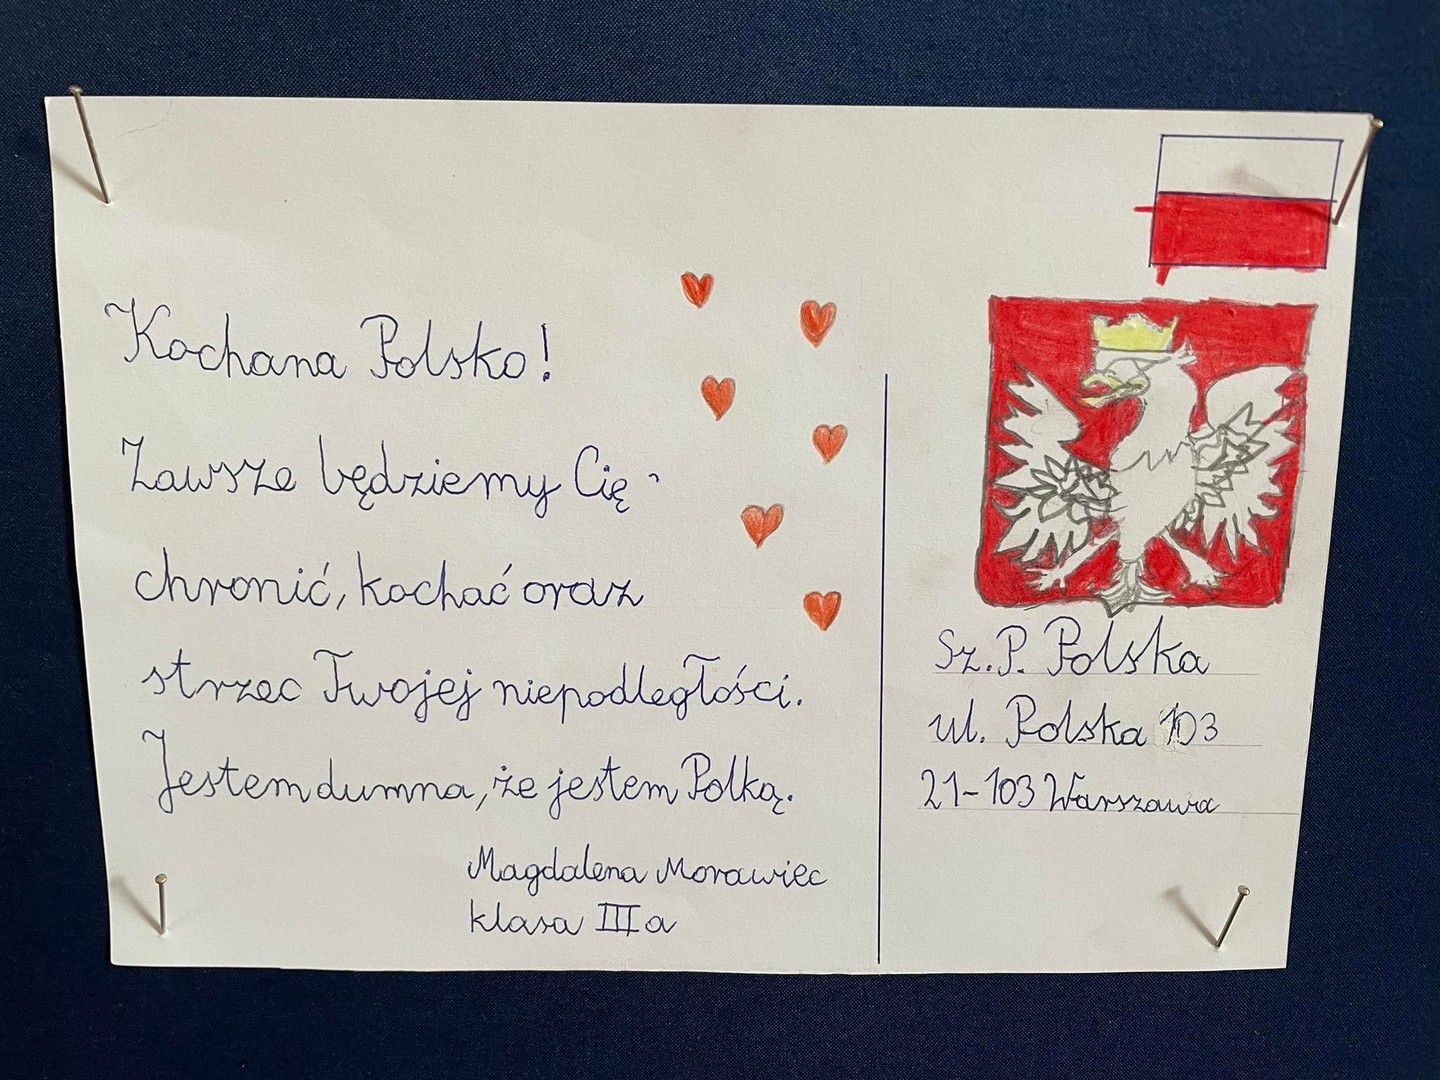 Kochana Polsko!
Zawsze będziemy Cię
chronić, kochać oraz
strzec Twojej niepodległości.
Jestem dumna, że jestem Polką.
Magdalena Morawiec
klasa III a
Sz. P. Polska
ul. Polska 103
21-103 Warszawa